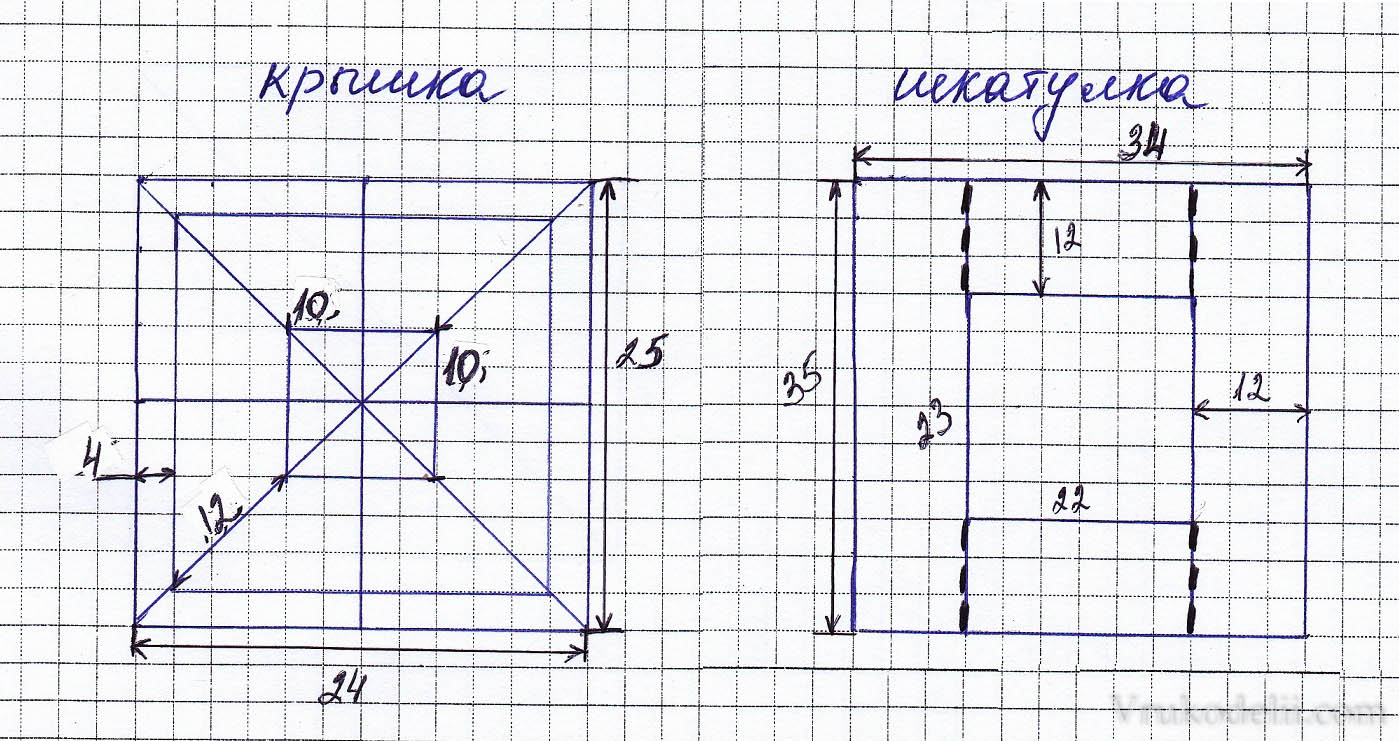 крышка
шкатулка
34
12
10;
10;
25
35
12
23
4
12
22
24
Vrukodelii.com